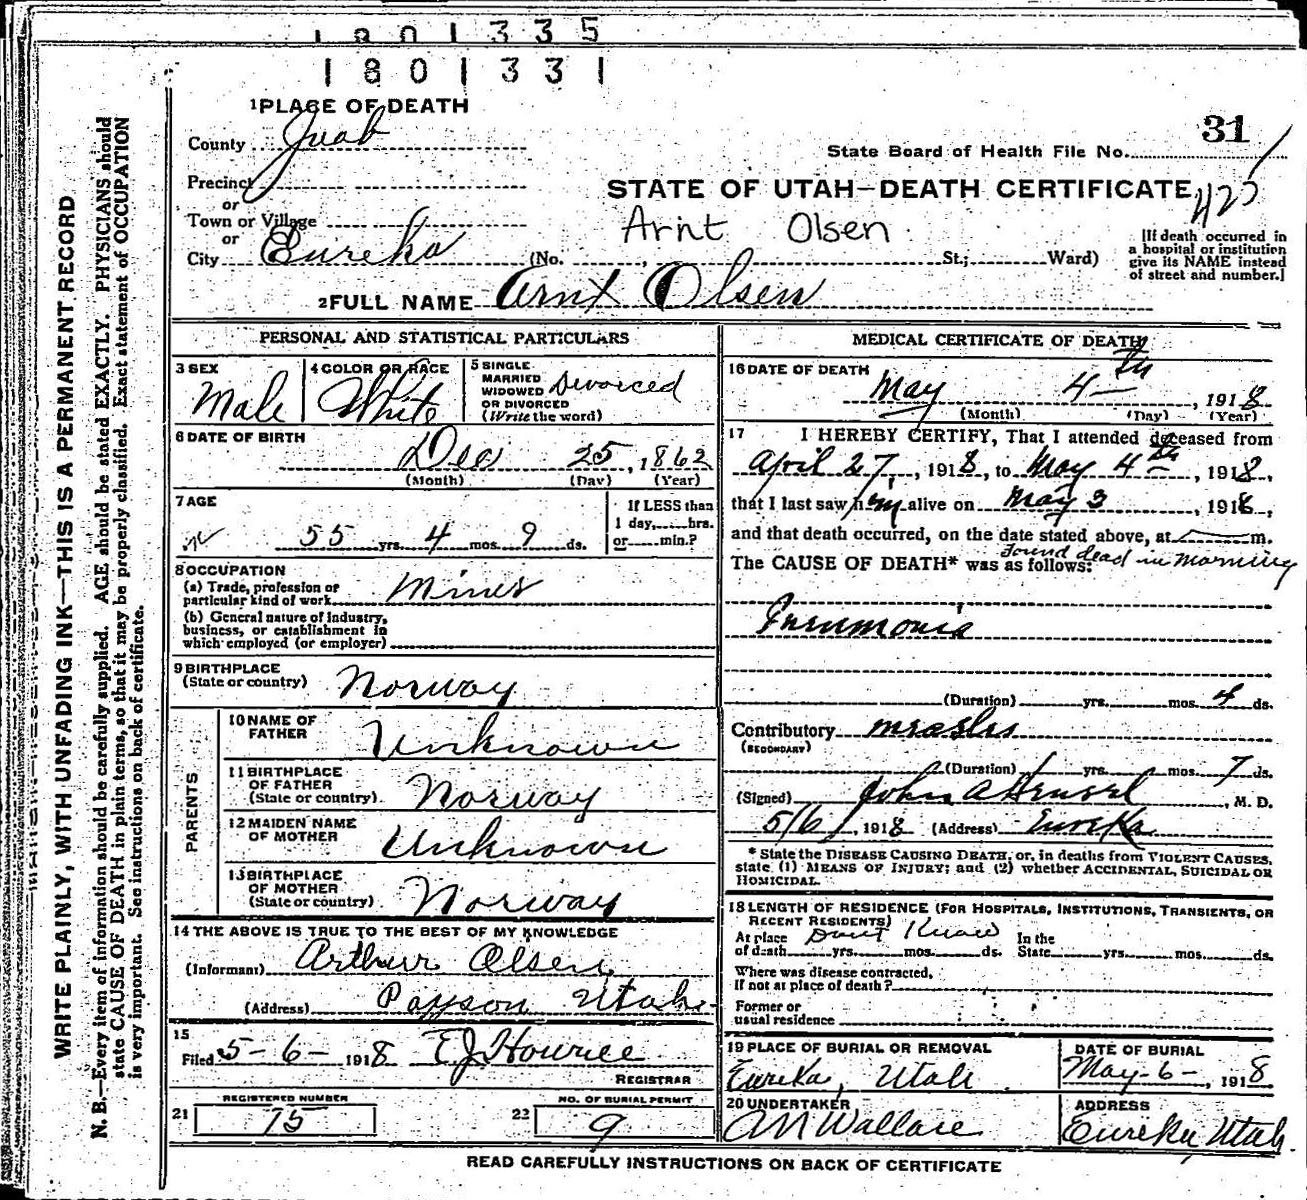 1801335
1801331
1 PLACE OF DEATH
County Juab
Precinct
or
Town or Village
or
City Eureka (No. , St.; Ward)
31
State Board of Health File No.
STATE OF UTAH—DEATH CERTIFICATE
Arnt Olsen
[If death occurred in
a hospital or institution
give its NAME instead
of street and number.]
2 FULL NAME Arnt Olsen
WRITE PLAINLY, WITH UNFADING INK—THIS IS A PERMANENT RECORD
N. B.—Every item of information should be carefully supplied. AGE should be stated EXACTLY. PHYSICIANS should
state CAUSE OF DEATH in plain terms, so that it may be properly classified. Exact statement of OCCUPATION
is very important. See instructions on back of certificate.
PERSONAL AND STATISTICAL PARTICULARS
3 SEX
Male
4 COLOR OR RACE
White
5 SINGLE
MARRIED
WIDOWED
OR DIVORCED
(Write the word)
Divorced
6 DATE OF BIRTH
Dec 25, 1862
(Month) (Day) (Year)
7 AGE
55 yrs. 4 mos. 9 ds.
If LESS than
1 day, hrs.
or min.?
8 OCCUPATION
(a) Trade, profession or
particular kind of work Miner
(b) General nature of Industry,
business, or establishment in
which employed (or employer)
9 BIRTHPLACE
(State or country) Norway
PARENTS
10 NAME OF
FATHER Unknown
11 BIRTHPLACE
OF FATHER
(State or country) Norway
12 MAIDEN NAME
OF MOTHER Unknown
13 BIRTHPLACE
OF MOTHER
(State or country) Norway
14 THE ABOVE IS TRUE TO THE BEST OF MY KNOWLEDGE
(Informant) Arthur Olsen
(Address) Payson Utah
15
Filed 5-6-1918
REGISTRAR
21 REGISTERED NUMBER
75
22 NO. OF BURIAL PERMIT
9
MEDICAL CERTIFICATE OF DEATH
16 DATE OF DEATH
May 4th, 1918
(Month) (Day) (Year)
17 I HEREBY CERTIFY, That I attended deceased from
April 27, 1918, to May 4th, 1918,
that I last saw him alive on May 3, 1918,
and that death occurred, on the date stated above, at m.
found dead in morning
The CAUSE OF DEATH* was as follows:
Pneumonia
(Duration) yrs. mos. 4 ds.
Contributory measles
(SECONDARY)
(Duration) yrs. mos. 7 ds.
(Signed) John A Hensel, M. D.
5/6, 1918 (Address) Eureka
* State the DISEASE CAUSING DEATH, or, in deaths from VIOLENT CAUSES,
state (1) MEANS OF INJURY; and (2) whether ACCIDENTAL, SUICIDAL OR
HOMICIDAL.
18 LENGTH OF RESIDENCE (FOR HOSPITALS, INSTITUTIONS, TRANSIENTS, OR
RECENT RESIDENTS)
Dont Know
At place
of death yrs. mos. ds.
In the
State yrs. mos. ds.
Where was disease contracted,
if not at place of death?
Former or
usual residence
19 PLACE OF BURIAL OR REMOVAL
Eureka, Utah
DATE OF BURIAL
May-6-, 1918
20 UNDERTAKER
AN Wallace
ADDRESS
Eureka, Utah
READ CAREFULLY INSTRUCTIONS ON BACK OF CERTIFICATE